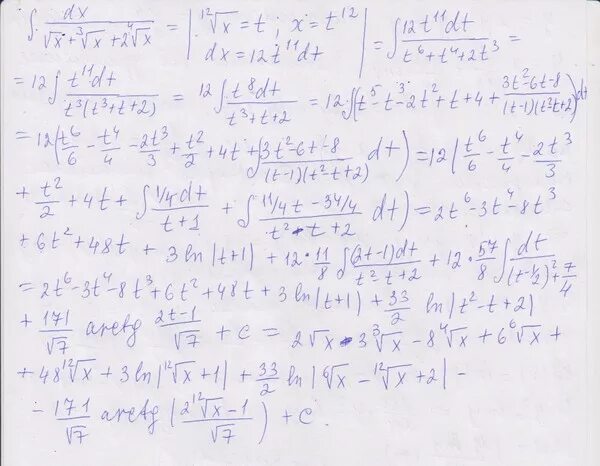 ∫ dx/(√x + ∛x + 2∜x) = | ¹²√x = t ; x = t¹² ; dx = 12t¹¹dt | = ∫ 12t¹¹dt/(t⁶ + t⁴ + 2t³) =
= 12 ∫ t¹¹dt/(t³(t³ + t + 2)) = 12 ∫ t⁸dt/(t³ + t + 2) = 12 ∫ (t⁵ - t³ - 2t² + t + 4 + (3t² - 6t - 8)/((t-1)(t² - t + 2))) dt
= 12 (t⁶/6 - t⁴/4 - 2t³/3 + t²/2 + 4t + ∫ (3t² - 6t - 8)/((t-1)(t² - t + 2)) dt) = 12 (t⁶/6 - t⁴/4 - 2t³/3
+ t²/2 + 4t + ∫ (1/4 dt)/(t+1) + ∫ (11/4 t - 34/4)/(t² - t + 2) dt) = 2t⁶ - 3t⁴ - 8t³
+ 6t² + 48t + 3 ln|t+1| + 12 · 11/8 ∫ (2t-1)dt/(t² - t + 2) + 12 · 57/8 ∫ dt/((t - 1/2)² + 7/4)
= 2t⁶ - 3t⁴ - 8t³ + 6t² + 48t + 3 ln|t+1| + 33/2 ln|t² - t + 2|
+ 171/√7 arctg (2t-1)/√7 + c = 2√x - 3∛x - 8∜x + 6⁶√x +
+ 48 ¹²√x + 3 ln|¹²√x + 1| + 33/2 ln|⁶√x - ¹²√x + 2| -
- 171/√7 arctg ((2 ¹²√x - 1)/√7) + c